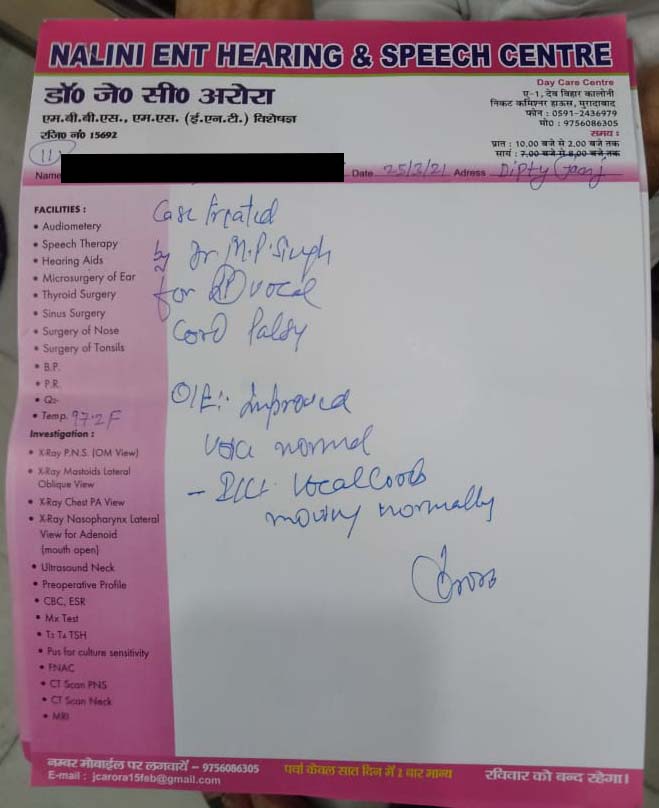 NALINI ENT HEARING & SPEECH CENTRE
डॉ० जे० सी० अरोरा
एम.बी.बी.एस., एम.एस. (ई.एन.टी.) विशेषज्ञ
रजि० नं० 15692
Day Care Centre
ए-1, देव विहार कालोनी
निकट कमिश्नर हाऊस, मुरादाबाद
फोन : 0591-2436979
मो० : 9756086305
समय :
प्रात : 10.00 बजे से 2.00 बजे तक
सायं : 7.00 बजे से 8.00 बजे तक
11
Name Date 25/3/21 Adress Dipty Ganj
FACILITIES :
• Audiometery
• Speech Therapy
• Hearing Aids
• Microsurgery of Ear
• Thyroid Surgery
• Sinus Surgery
• Surgery of Nose
• Surgery of Tonsils
• B.P.
• P.R.
• O2-
• Temp. 97.2F
Investigation :
• X-Ray P.N.S. (OM View)
• X-Ray Mastoids Lateral
Oblique View
• X-Ray Chest PA View
• X-Ray Nasopharynx Lateral
View for Adenoid
(mouth open)
• Ultrasound Neck
• Preoperative Profile
• CBC, ESR
• Mx Test
• T3 T4 TSH
• Pus for culture sensitivity
• FNAC
• CT Scan PNS
• CT Scan Neck
• MRI
Case treated
by Dr M.P. Singh
for vocal
Cord Palsy
O/E:- improved
Voice normal
- Vocal Cords
moving normally
नम्बर मोबाईल पर लगवायें – 9756086305
E-mail : jcarora15feb@gmail.com
पर्चा केवल सात दिन में 2 बार मान्य
रविवार को बन्द रहेगा।